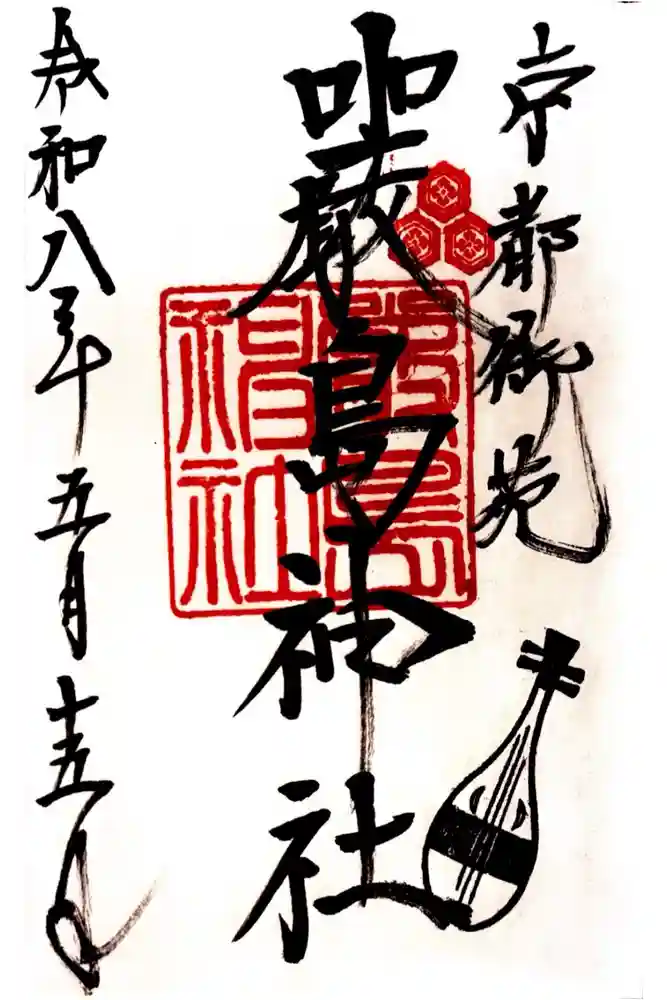 京都御苑
嚴島神社
嚴島神社
令和八年五月十五日